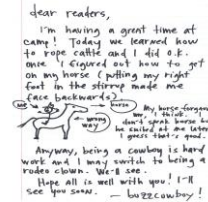 dear readers,
I'm having a great time at
camp! Today we learned how
to rope cattle and I did o.k.
once I figured out how to get
on my horse (putting my right
foot in the stirrup made me
face backwards).
me
horse
wrong
way
My horse forgave
me, I think.
don't speak horse but
he smiled at me later
I guess that's good.
Anyway, being a cowboy is hard
work and I may switch to being a
rodeo clown. We'll see.
Hope all is well with you! I'll
see you soon.
— buzzcowboy!